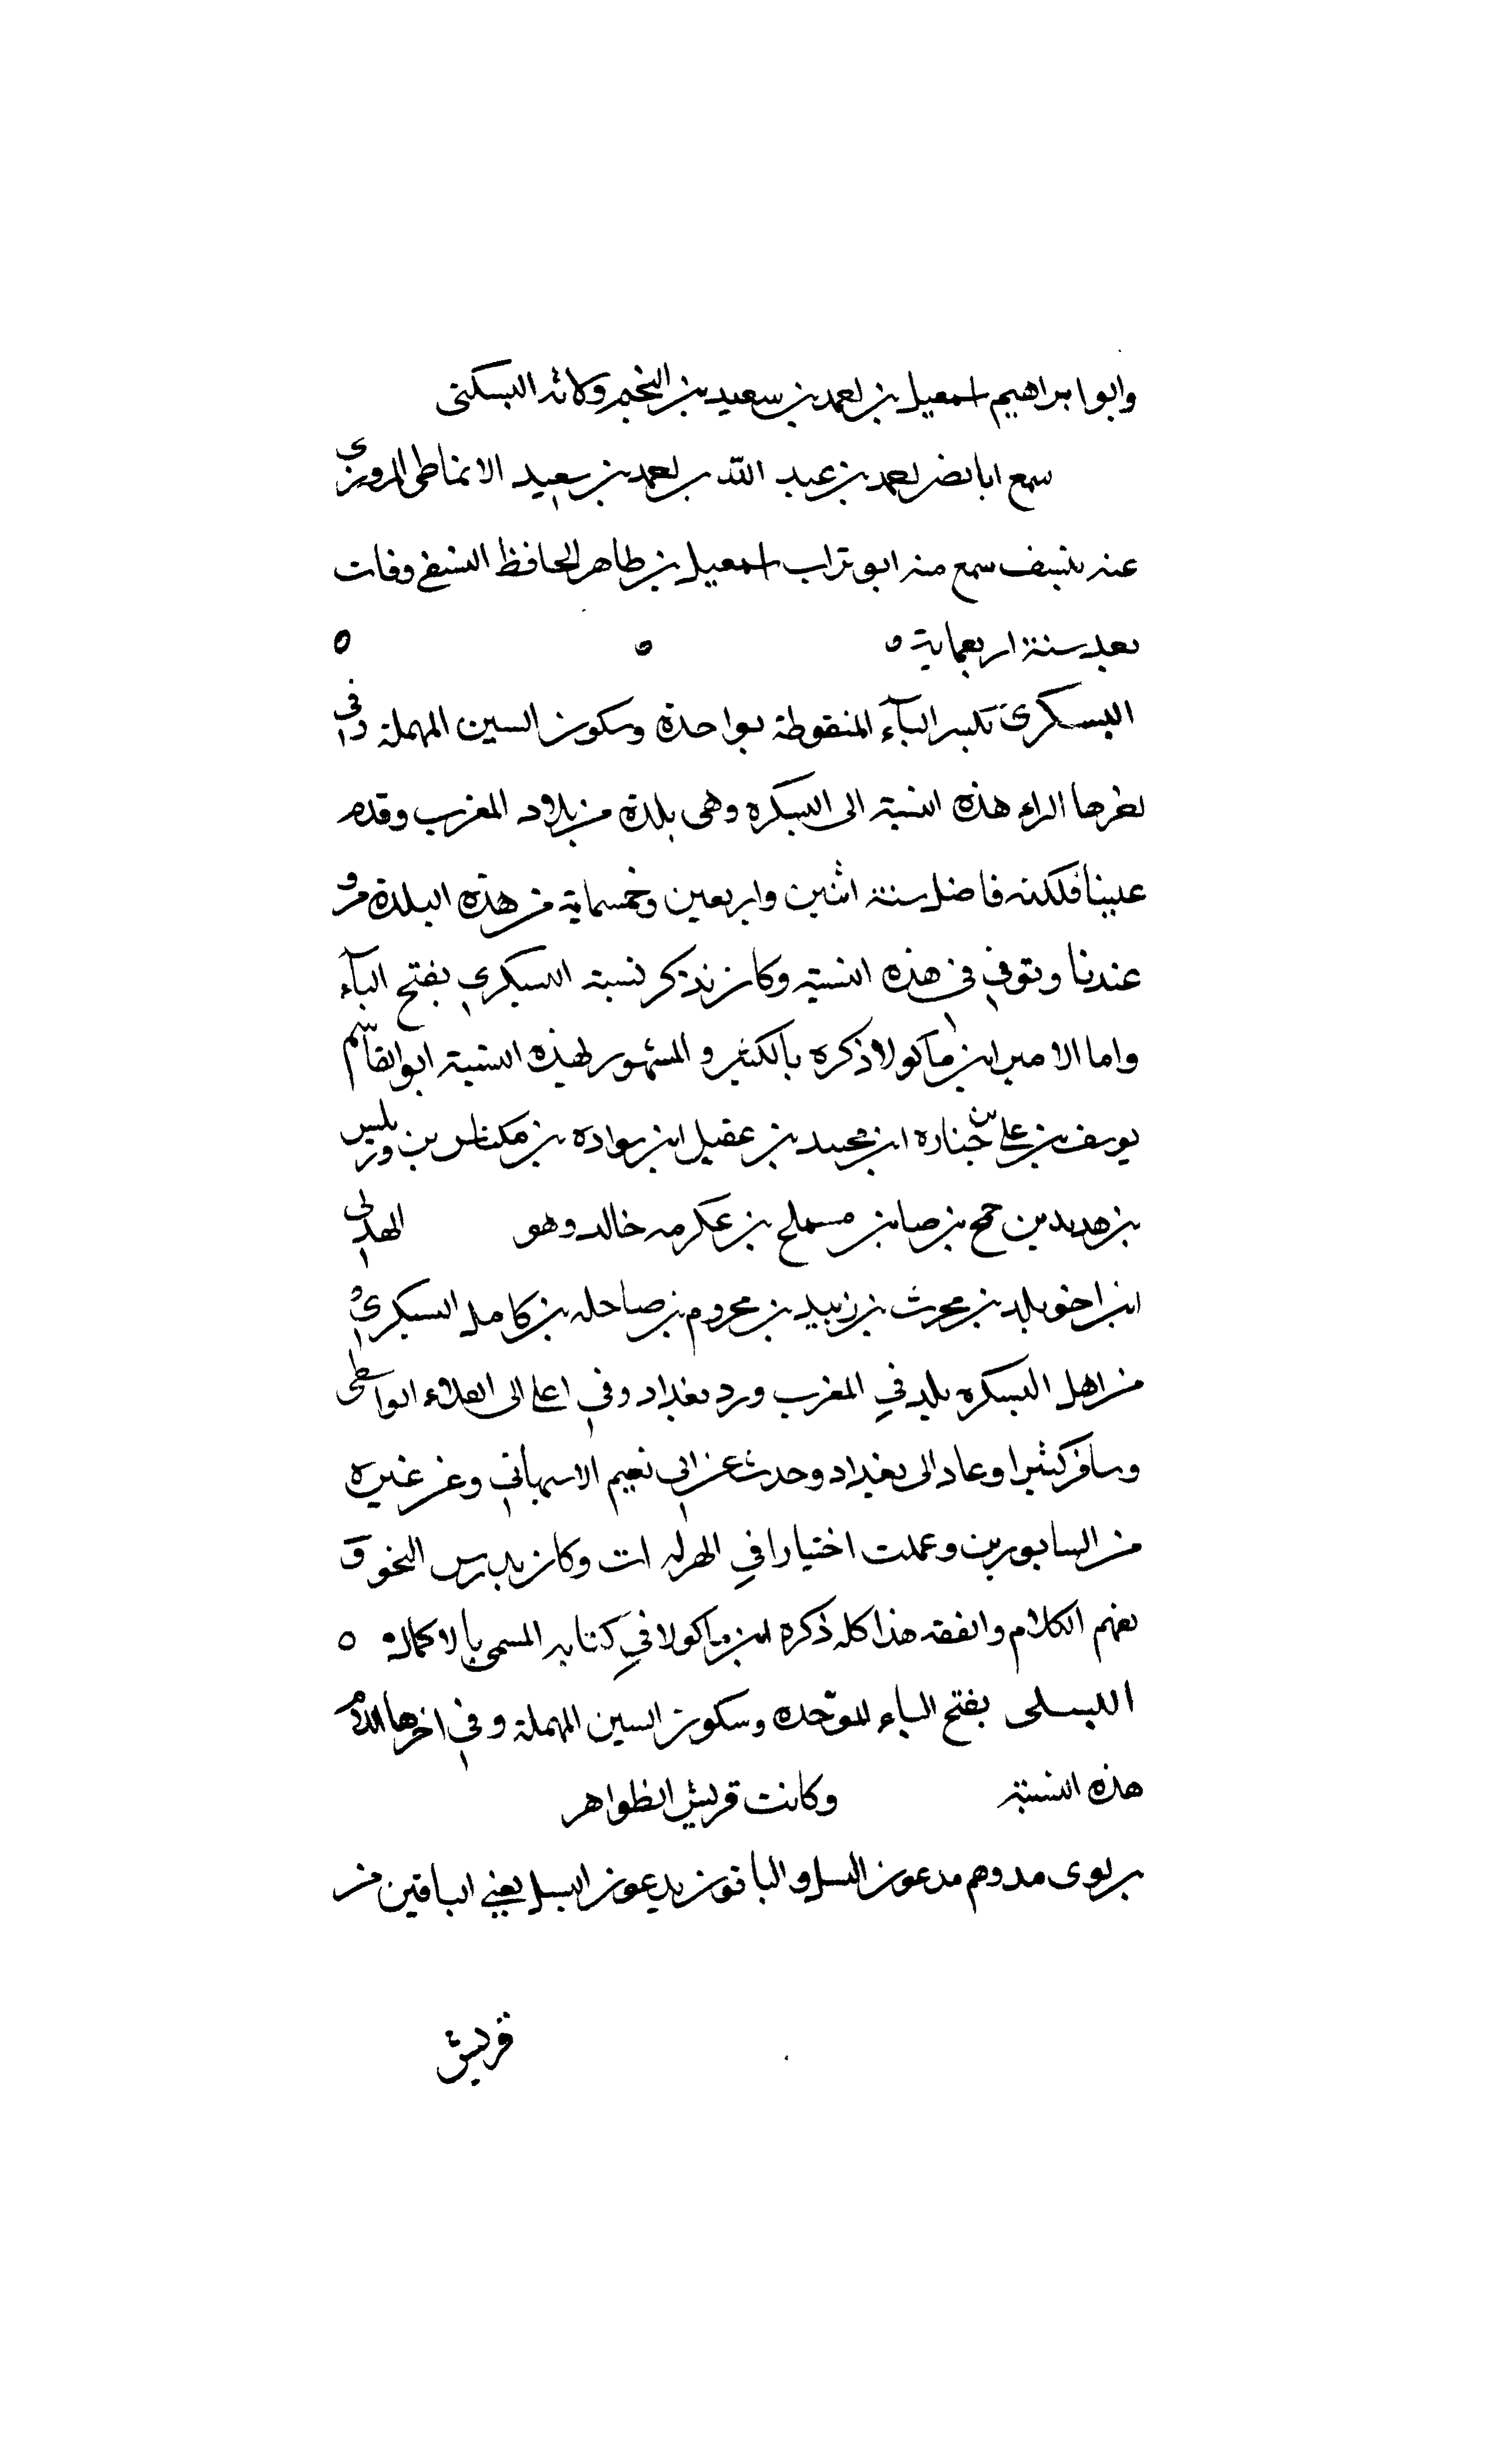 وابو ابراهيم اسمعيل بن احمد بن سعيد بن النجم وكاثه البسكتى
سمع ابا نصر احمد بن عبد الله بن احمد بن سعيد الانماطى المروزى
عنه بنسف سمع منه ابو تراب اسمعيل بن طاهر الحافظ النسفى وفات
بعد سنة اربعماية ٥ ٥ ٥
البسكرى بكسر الباء المنقوطة بواحدة وسكون السين المهملة وفى
اخرها الراء هذه النسبة الى البسكره وهى بلدة من بلاد المغرب وقدم
علينا فاضل سنة اثنين واربعين وخمسماية من هذه البلدة مرو
عندنا وتوفى فى هذه النسبة وكان يذكر نسبة البسكرى بفتح الباء
واما الامير ابن ماكولا ذكره بالكسر و المشهور لهذه النسبة ابو القاسم
يوسف بن على بن جباره ابن محمد بن عقيل ابن سواده بن مكناس بن وربليس
بن هديد بن جمح بن صا بن مستملح بن عكرمه خالد وهو الهذلى
ابن اخو بلد بن محرث بن زبيد بن مخزوم بن صاحله بن كامل البسكرى
من اهل البسكره بلد في المغرب ورد بغداد وفى اعلى الى العلاء الواسطى
وسافر كثيرا وعاد الى بغداد وحدث عن ابى نعيم الاسبهانى وعن غيره
من السابورين وعملت اختيارا في القراات وكان يدرس النحو و
يفهم الكلام والفقه هذا كله ذكره ابن ماكولا في كتابه المسمى بالاكمال ٥
البسلى بفتح الباء الموحده وسكون السين المهملة وفى اخرها اللام
هذه النسبة وكانت قريش الظواهر
بن لوى يدوهم يدعون البسل و الباقون يدعون البسل يعنى الباقين من
قريش